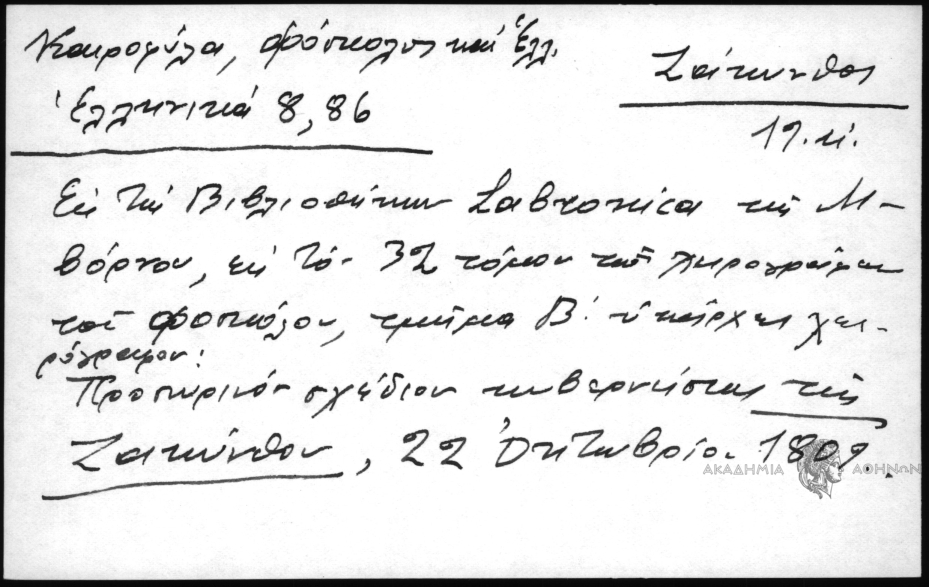 Καιροφύλα, Φόσκολος καὶ Ἑλλ.
Ἑλληνικά 8, 86
Ζάκυνθος
19. αἰ.
Εἰς τὴν Βιβλιοθήκην Labronica τῆς Λι-
βόρνου, εἰς τὸν 32 τόμον τῶν χειρογράφων
τοῦ Φοσκόλου, τμῆμα Β΄ ὑπάρχει χει-
ρόγραφον:
Προσωρινὸν σχέδιον κυβερνήσεως τῆς
Ζακύνθου, 22 Ὀκτωβρίου 1809.
ΑΚΑΔΗΜΙΑ ΑΘΗΝΩΝ